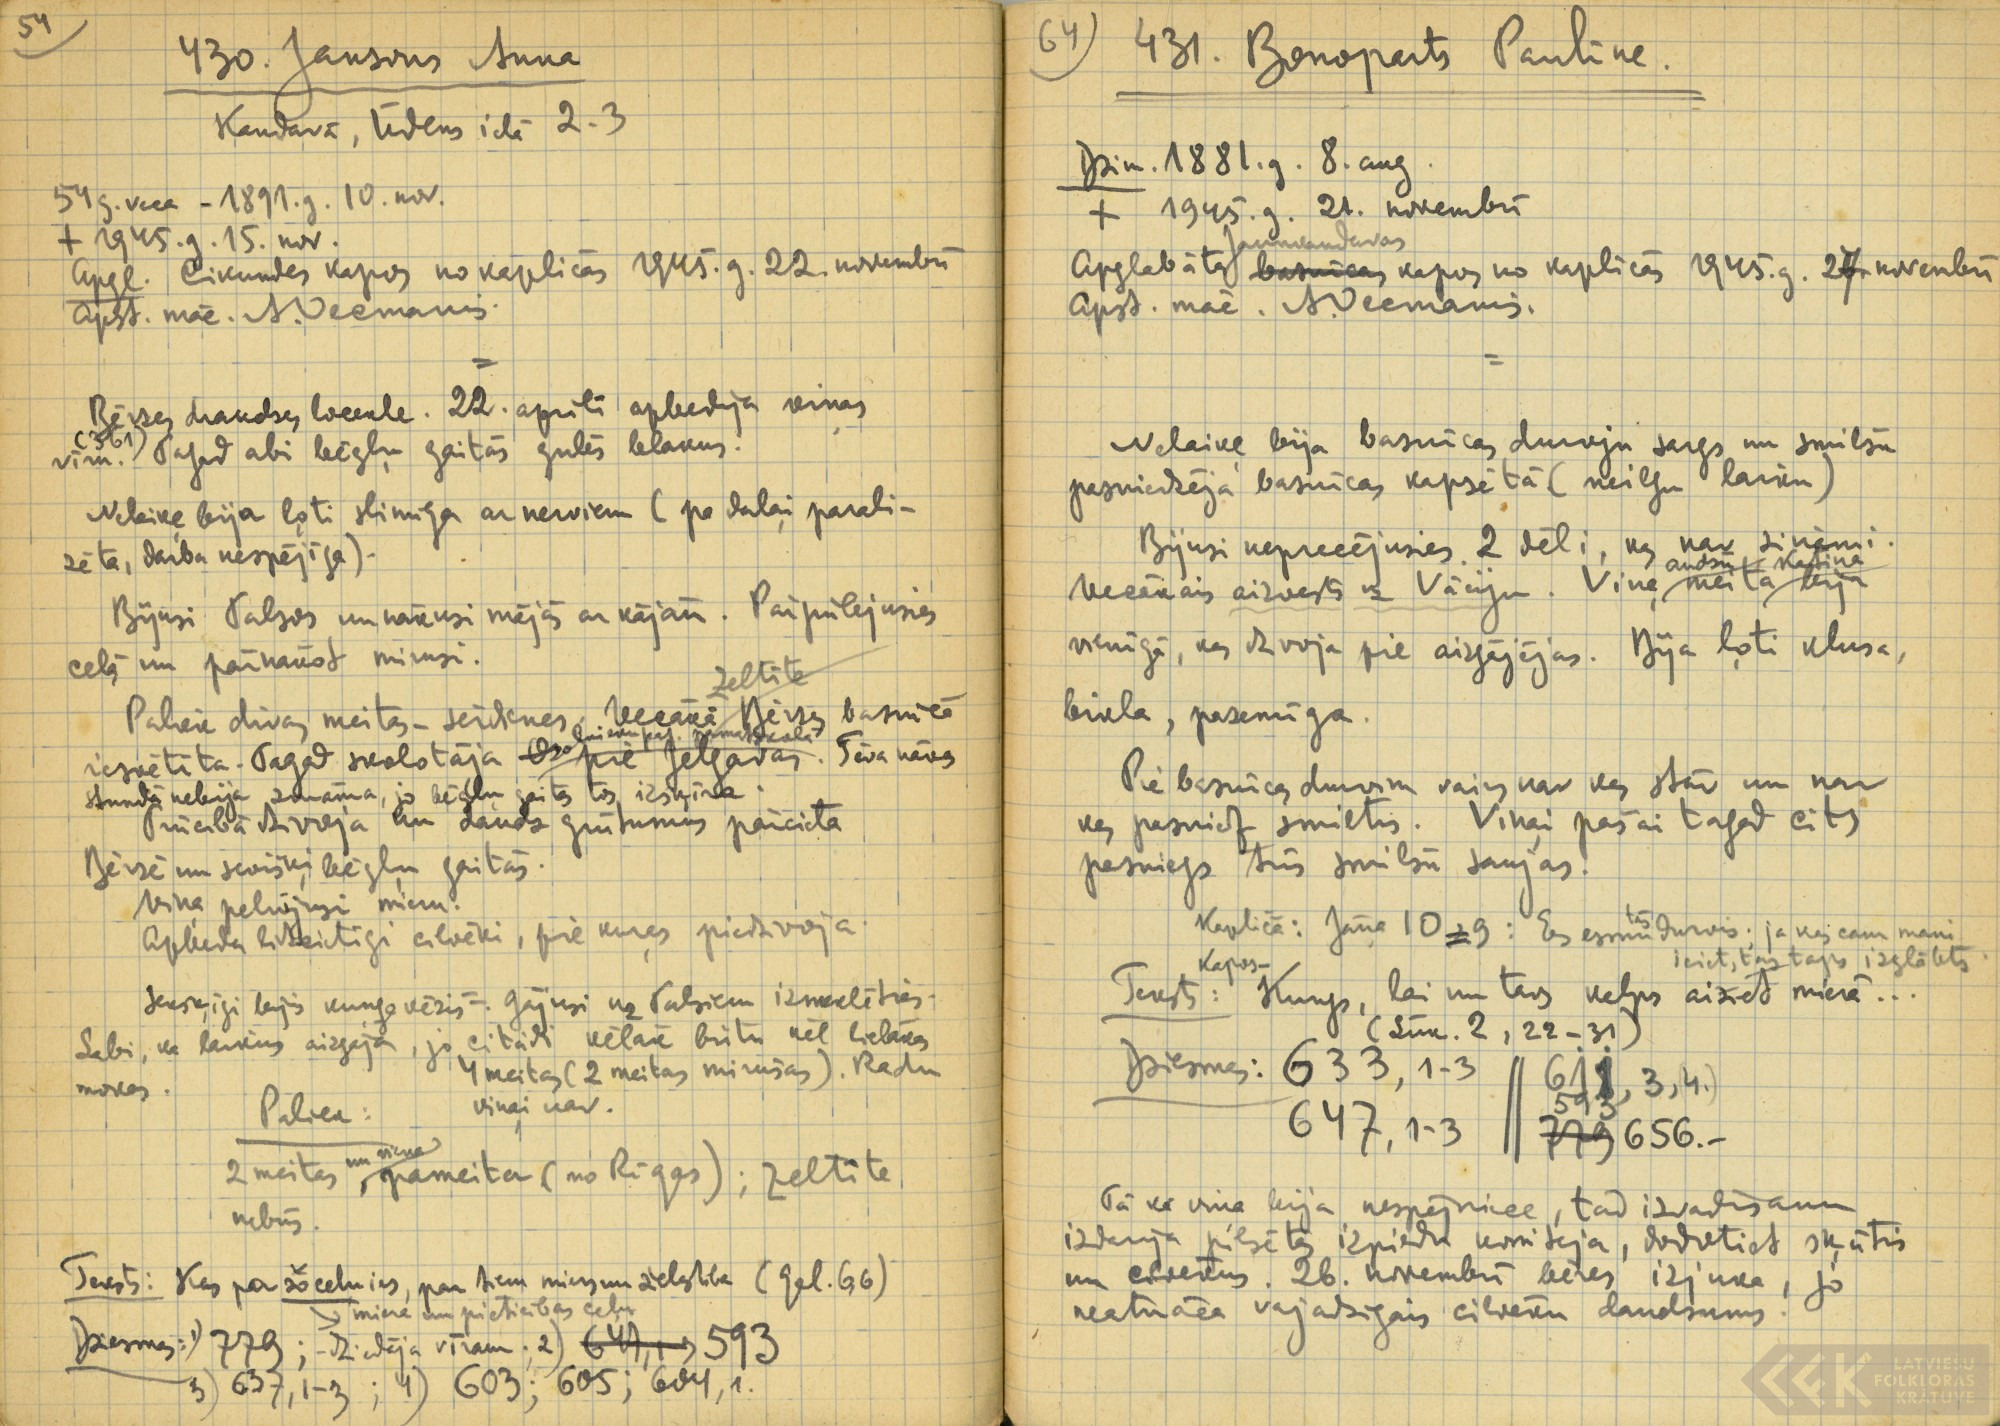 54)
430. Jansons Anna
Kandavā, Ūdens ielā 2-3
54 g. veca - 1891. g. 10. nov.
+ 1945. g. 15. nov.
Apgl. Čikundes kapos no kapličas 1945. g. 22. novembrī
Apst. māc. A. Veemanis.
=
Bērzes draudzes locekle. 22. aprīlī apbedīja viņas
(361)
vīru. Tagad abi bēgļu gaitās gulēs blakus.
Nelaiķe bija ļoti slimīga ar nerviem (pa daļai parali-
zēta, darba nespējīga).
Bijusi Talsos un nākusi mājās ar kājām. Pārpūlējusies
ceļā un pārnākot mirusi.
Zeltīte
Paliek divas meitas - Vecākā Bērzes baznīcā
iesvētīta. Tagad skolotāja pie Jelgavas. Tēva nāves
stundā nebija zināma, jo bēgļu gaitas tos izšķīra.
Trūcībā dzīvoja un daudz grūtumus pārcieta
Bērzē un sevišķi bēgļu gaitās.
Viņa pelnījusi mieru.
Apbeda līdzcietīgi cilvēki, pie kuŗas piedzīvoja.
bijis kungа vēzis. Gājusi uz Talsiem izmeklēties.
Labi, ka laikus aizgāja, jo citādi vēlāk būtu vēl lielākas
mokas.
4 meitas (2 meitas mirušas). Radu
viņai nav.
Paliek:
un viena
2 meitas, pameita (no Rīgas); Zeltīte
nebūs.
Teksts: Kas par šo ceļu ies, par tiem miers un žēlastība (Gal. 6,6)
miera un pieticības ceļu
Dziesmas: 1) 779; - dziedāja vīram; 2) 641, 1 593
3) 637, 1-3; 4) 603; 605; 604, 1.
64)
431. Bonoparts Paulīne.
Dzim. 1881. g. 8. aug.
+ 1945. g. 21. novembrī
Jaunkandavas
Apglabāta baznīcas kapos no kapličas 1945. g. 27. novembrī
Apst. māc. A. Veemanis.
=
Nelaiķe bija baznīcas durvju sargs un smilšu
pasniedzēja baznīcas kapsētā (neilgu laiku)
Bijusi neprecējusies. 2 dēli, kas nav zināmi.
audžu Katina
Vecākais aizvests uz Vāciju. Viņa meita bija
vienīgā, kas dzīvoja pie aizgājējas. Bija ļoti klusa,
bikla, pazemīga.
Pie baznīcas durvīm vairs nav kas stāv un nav
kas pasniedz smiltis. Viņai pašai tagad cits
pasniegs trīs smilšu saujas!
Kapličā: Jāņa 10, 9: Es esmu tās durvis; ja kas caur mani
ieiet, tas taps izglābts.
Kapos-
Teksts: Kungs, lai nu tavs kalps aiziet mierā...
(Lūk. 2, 22-31)
Dziesmas: 633, 1-3 || 611, 3, 4.)
593
647, 1-3 || 779 656.-
Tā kā viņa bija nespējniece, tad izvadīšanu
izdarīja pilsētas izpildu komiteja, dodot šķūtis
un cilvēkus. 26. novembrī bēres izjuka, jo
neatnāca vajadzīgais cilvēku daudzums.
LATVIEŠU
FOLKLORAS
KRĀTUVE